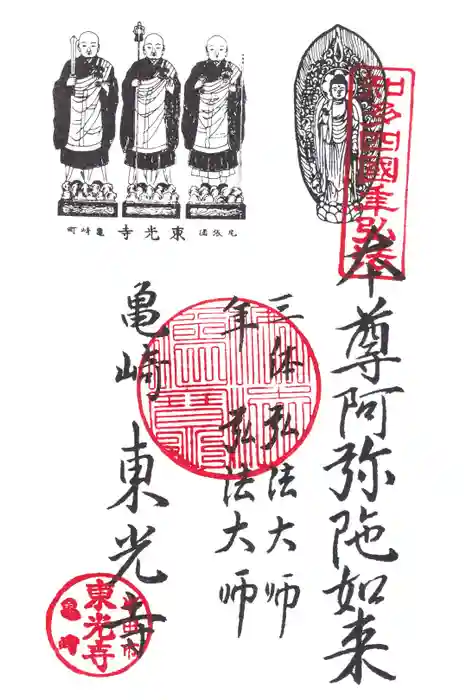 知多四國年弘法
本尊阿弥陀如来
三体弘法大師
年弘法大師
亀崎 東光寺
尾張國 東光寺 亀崎町
半田市
東光寺
亀崎